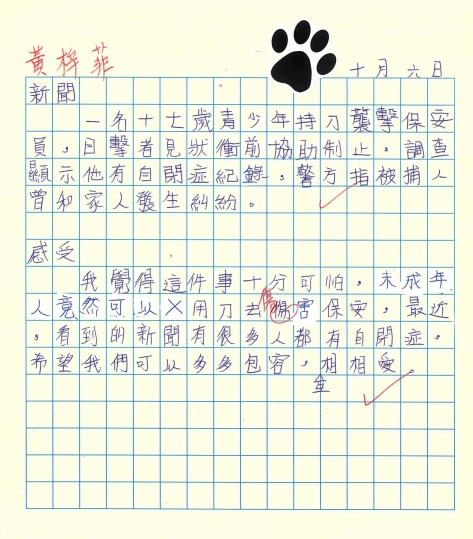 黃梓菲
十月六日
新聞
一名十七歲青少年持刀襲擊保安
員，目擊者見狀衝前協助制止，調查
顯示他有自閉症紀錄，警方指被捕人
曾和家人發生糾紛。
感受
我覺得這件事十分可怕，未成年
人竟然可以用刀去傷害保安，最近
，看到的新聞有很多人都有自閉症，
希望我們可以多多包容，相相愛。